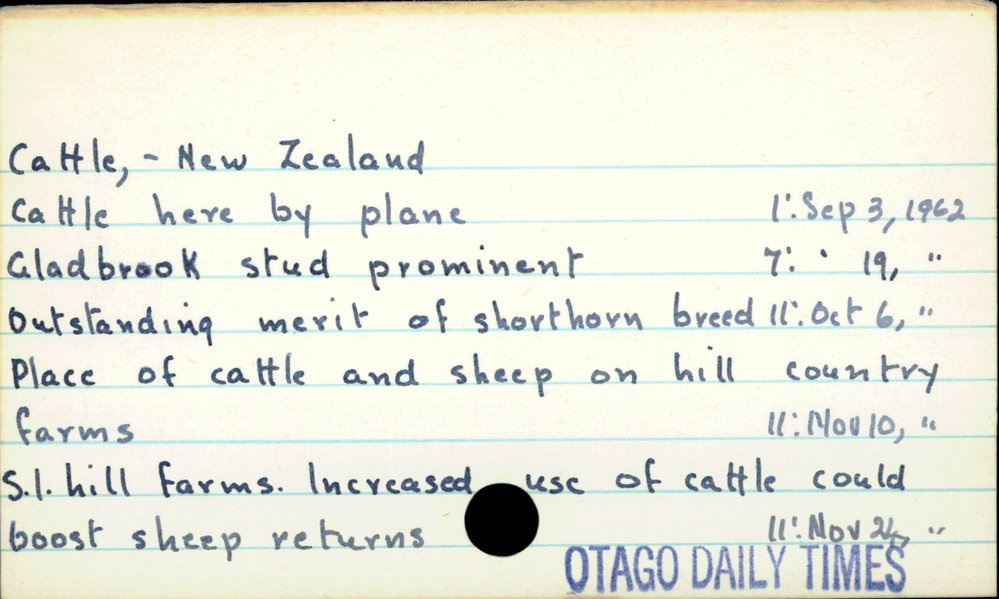 Cattle, - New Zealand
Cattle here by plane 1: Sep 3, 1962
Gladbrook stud prominent 7: " 19, "
Outstanding merit of shorthorn breed 11: Oct 6, "
Place of cattle and sheep on hill country
farms 11: Nov 10, "
S.I. hill farms. Increased use of cattle could
boost sheep returns 11: Nov 24, "
OTAGO DAILY TIMES